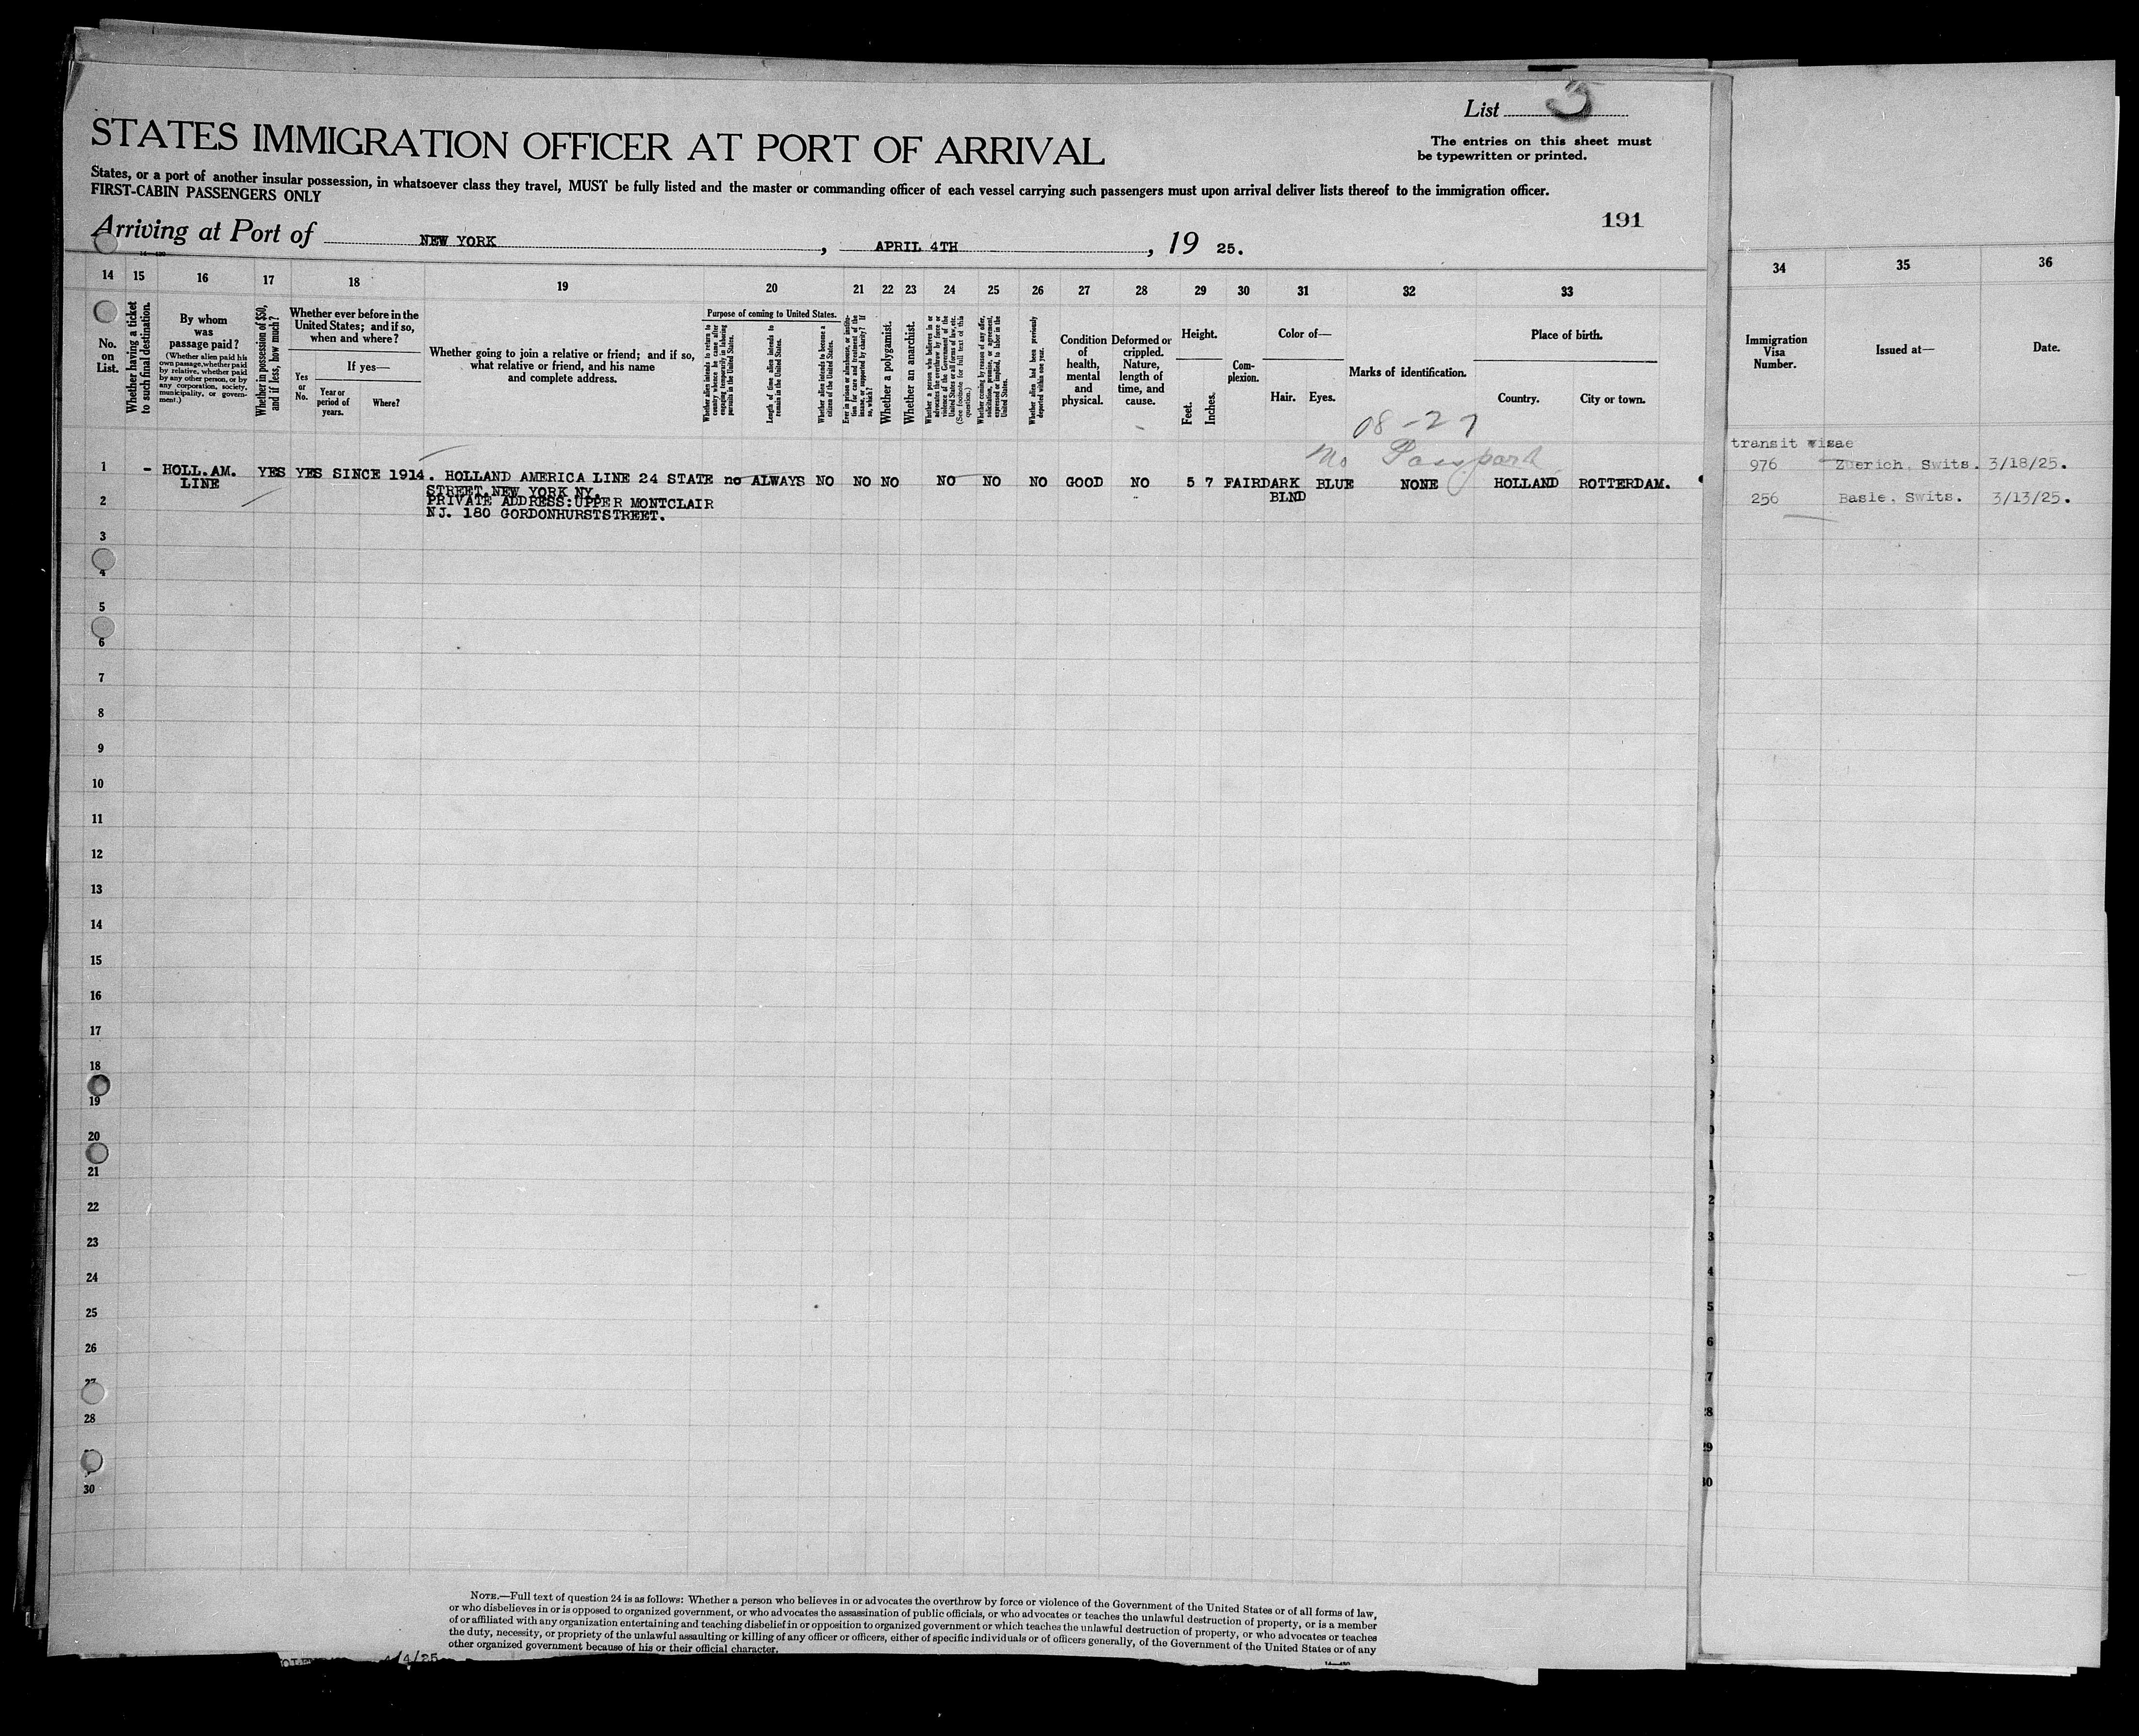 List 3
STATES IMMIGRATION OFFICER AT PORT OF ARRIVAL
The entries on this sheet must
be typewritten or printed.
States, or a port of another insular possession, in whatsoever class they travel, MUST be fully listed and the master or commanding officer of each vessel carrying such passengers must upon arrival deliver lists thereof to the immigration officer.
FIRST-CABIN PASSENGERS ONLY
191
Arriving at Port of NEW YORK, APRIL 4TH, 19 25.
14 15 16 17 18 19 20 21 22 23 24 25 26 27 28 29 30 31 32 33 34 35 36
No.
on
List.
Whether having a ticket
to such final destination.
By whom
was
passage paid?
(Whether alien paid his
own passage, whether paid
by relative, whether paid
by any other person, or by
any corporation, society,
municipality, or govern-
ment.)
Whether in possession of $50,
and if less, how much?
Whether ever before in the
United States; and if so,
when and where?
Yes
or
No.
If yes—
Year or
period of
years.
Where?
Whether going to join a relative or friend; and if so,
what relative or friend, and his name
and complete address.
Purpose of coming to United States.
Whether alien intends to return to
country whence he came after
engaging temporarily in laboring
pursuits in the United States.
Length of time alien intends to
remain in the United States.
Whether alien intends to become a
citizen of the United States.
Ever in prison or almshouse, or institu-
tion for care and treatment of the
insane, or supported by charity? If
so, which?
Whether a polygamist.
Whether an anarchist.
Whether a person who believes in or
advocates the overthrow by force or
violence of the Government of the
United States or all forms of law, etc.
(See footnote for full text of this
question.)
Whether coming by reason of any offer,
solicitation, promise, or agreement,
expressed or implied, to labor in the
United States.
Whether alien had been previously
deported within one year.
Condition
of
health,
mental
and
physical.
Deformed or
crippled.
Nature,
length of
time, and
cause.
Height.
Feet.
Inches.
Com-
plexion.
Color of—
Hair. Eyes.
Marks of identification.
Place of birth.
Country. City or town.
Immigration
Visa
Number.
Issued at—
Date.
08-27
No Passport
transit visae
976 Zuerich, Swits. 3/18/25.
1 - HOLL.AM. YES YES SINCE 1914. HOLLAND AMERICA LINE 24 STATE no ALWAYS NO NO NO NO NO NO GOOD NO 5 7 FAIR DARK BLUE NONE HOLLAND ROTTERDAM.
LINE STREET.NEW YORK NY. BLND
2 PRIVATE ADDRESS:UPPER MONTCLAIR 256 Basle, Swits. 3/13/25.
NJ. 180 GORDONHURSTSTREET.
3
4
5
6
7
8
9
10
11
12
13
14
15
16
17
18
19
20
21
22
23
24
25
26
27
28
30
NOTE.—Full text of question 24 is as follows: Whether a person who believes in or advocates the overthrow by force or violence of the Government of the United States or of all forms of law,
or who disbelieves in or is opposed to organized government, or who advocates the assassination of public officials, or who advocates or teaches the unlawful destruction of property, or is a member
of or affiliated with any organization entertaining and teaching disbelief in or opposition to organized government or which teaches the unlawful destruction of property, or who advocates or teaches
the duty, necessity, or propriety of the unlawful assaulting or killing of any officer or officers, either of specific individuals or of officers generally, of the Government of the United States or of any
other organized government because of his or their official character.
4/4/25